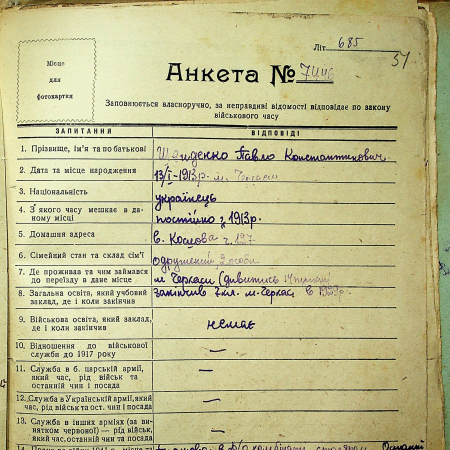 Літ 685
51
Місце
для
фотокартки
Анкета № 7446
Заповнюється власноручно, за неправдиві відомості відповідає по закону
військового часу
ЗАПИТАННЯ
ВІДПОВІДІ
1. Прізвище, ім'я та по батькові
Павло Константинович
2. Дата та місце народження
13/I-1913р. м. Черкаси
3. Національність
українець
4. З якого часу мешкає в даному місці
постійно з 1913р.
5. Домашня адреса
в. ч. 197
6. Сімейний стан та склад сім'ї
одружений 2 особи
7. Де проживав та чим займався
до переїзду в дане місце
м Черкаси (дивитись 14 пункт)
8. Загальна освіта, який учбовий
заклад, де і коли закінчив
закінчив 7 кл. м. Черкас в 1929р.
9. Військова освіта, який заклад,
де і коли закінчив
немає
10. Відношення до військової
служби до 1917 року
—
11. Служба в б. царській армії,
який час, рід військ та
останній чин і посада
—
12. Служба в Українській армії, який
час, рід військ та ост. чин і посада
—
13. Служба в інших арміях (за ви-
нятком червоної) — рід військ,
який час, останній чин та посада
—